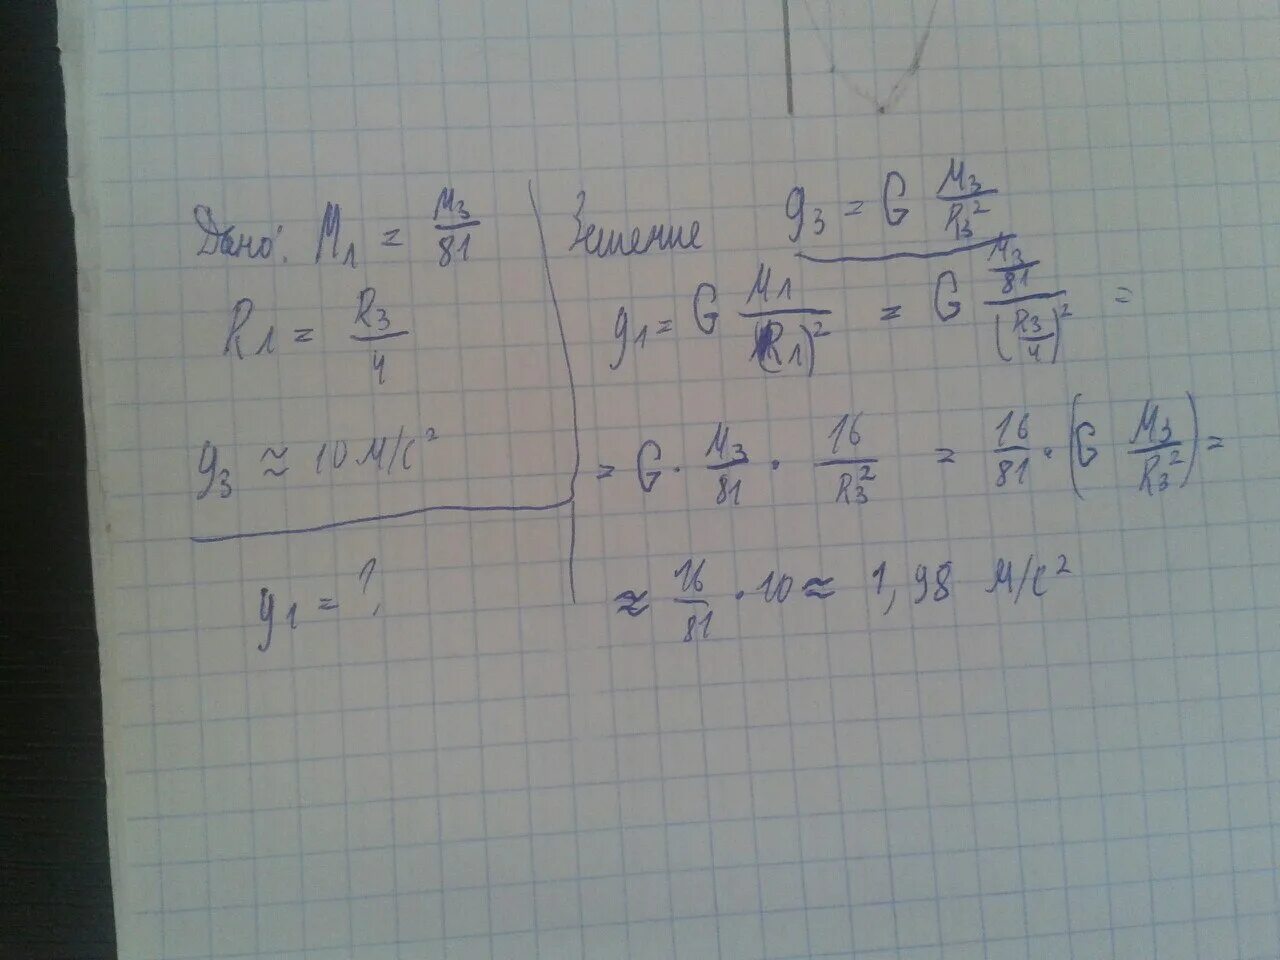 Дано: Mл = Mз/81
Rл = Rз/4
gз ≈ 10 м/с²
g1 = ?
Решение gз = G Mз/Rз²
g1 = G Mл/(Rл)² = G (Mз/81)/(Rз/4)² =
= G · Mз/81 · 16/Rз² = 16/81 · (G Mз/Rз²) =
≈ 16/81 · 10 ≈ 1,98 м/с²